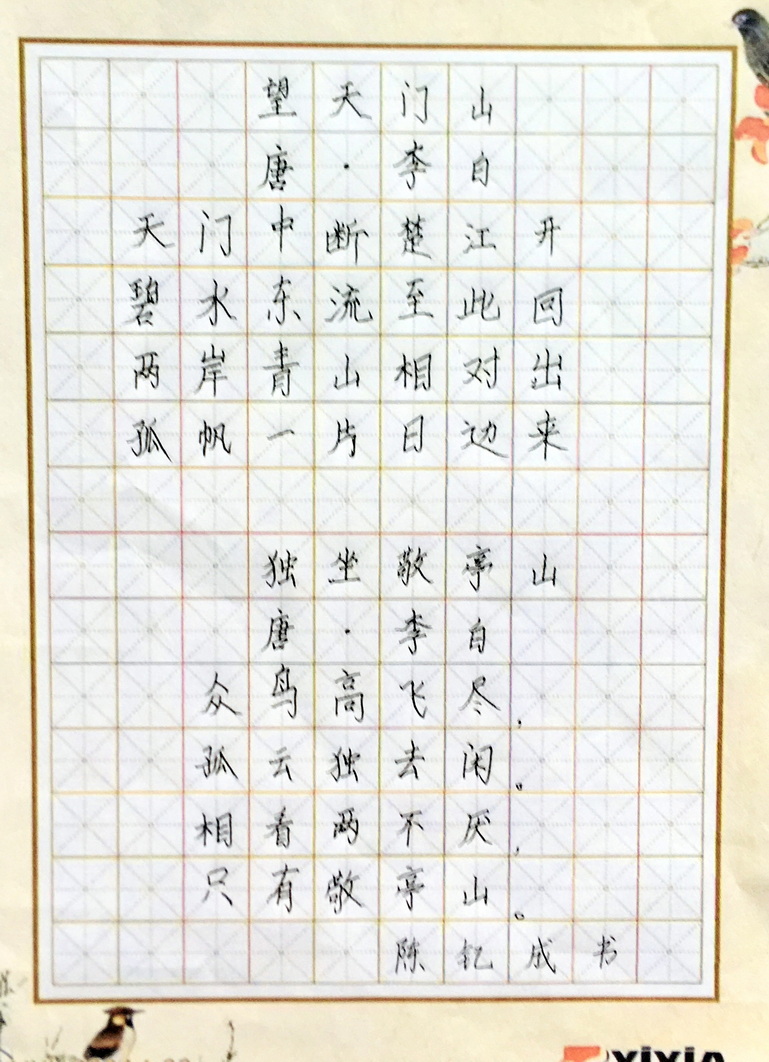 望天门山
唐·李白
天门中断楚江开
碧水东流至此回
两岸青山相对出
孤帆一片日边来
独坐敬亭山
唐·李白
众鸟高飞尽,
孤云独去闲。
相看两不厌,
只有敬亭山。
陈钇成书
YIXIA